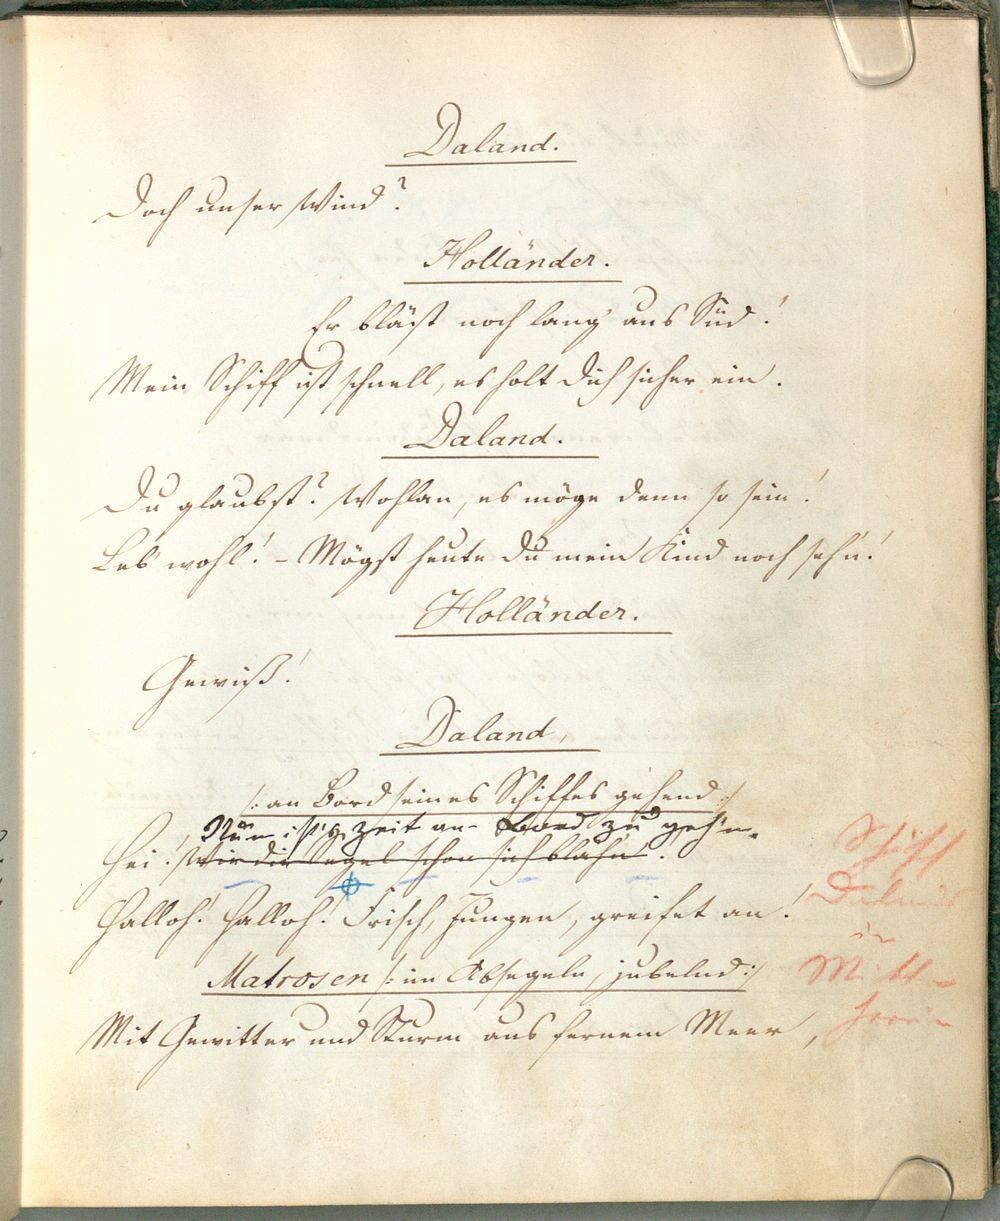 Daland.
Doch unser Wind?
Holländer.
Er bläst noch lang' aus Süd!
Mein Schiff ist schnell, es holt dich sicher ein.
Daland.
Du glaubst? Wohlan, es möge denn so sein!
Leb' wohl! – Mögst heute du mein Kind noch seh'n!
Holländer.
Gewiß!
Daland,
/: an Bord seines Schiffes gehend :/
Nun ist's Zeit an Bord zu geh'n.
Hei! Wie die Segel schon sich bläh'n!
Halloh! Halloh! Frisch, Jungen, greifet an!
Matrosen /: im Absegeln, jubelnd :/
Mit Gewitter und Sturm aus fernem Meer,
Schiff
Dalands
in